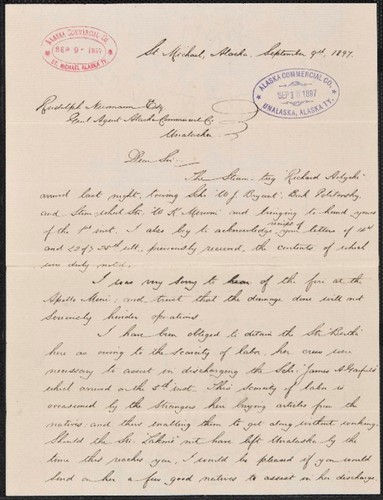 ALASKA COMMERCIAL CO.
SEP 9- 1897
ST. MICHAEL, ALASKA TY.
St Michael, Alaska. September 9th, 1897.
ALASKA COMMERCIAL CO.
SEP 1 1897
UNALASKA, ALASKA TY.
Rudolph Neumann Esq
Genl Agent Alaska Commercial Co,
Unalaska
Dear Sir.
The Steam tug "Richard Holyoke"
arrived last night, towing Schr "W J Bryant", Bark
and Stern wheel Str. "W K Merwin" and bringing to hand yours
of the 1st inst. I also beg to acknowledge receipt of your letters of
and 25th ult, previously received, the contents of which
were duly noted.
I was very sorry to hear of the fire at the
Apollo Mine, and trust that the damage done will not
seriously hinder operations
I have been obliged to detain the Str "Bertha"
here as owing to the scarcity of labor, her crew were
necessary to assist in discharging the Schr "James A Garfield"
which arrived on the 5th inst. This scarcity of labor is
occasioned by the strangers here buying articles from the
natives, and thus enabling them to get along without working.
Should the Str. "Lakme" not have left Unalaska by the
time this reaches you, I would be pleased if you would
send on her a few good natives to assist in her discharge.